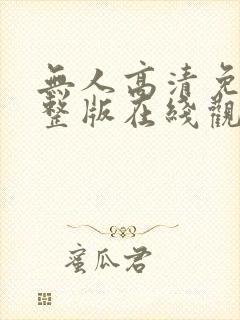 無人高清免
整版在綫觀
蜜瓜君